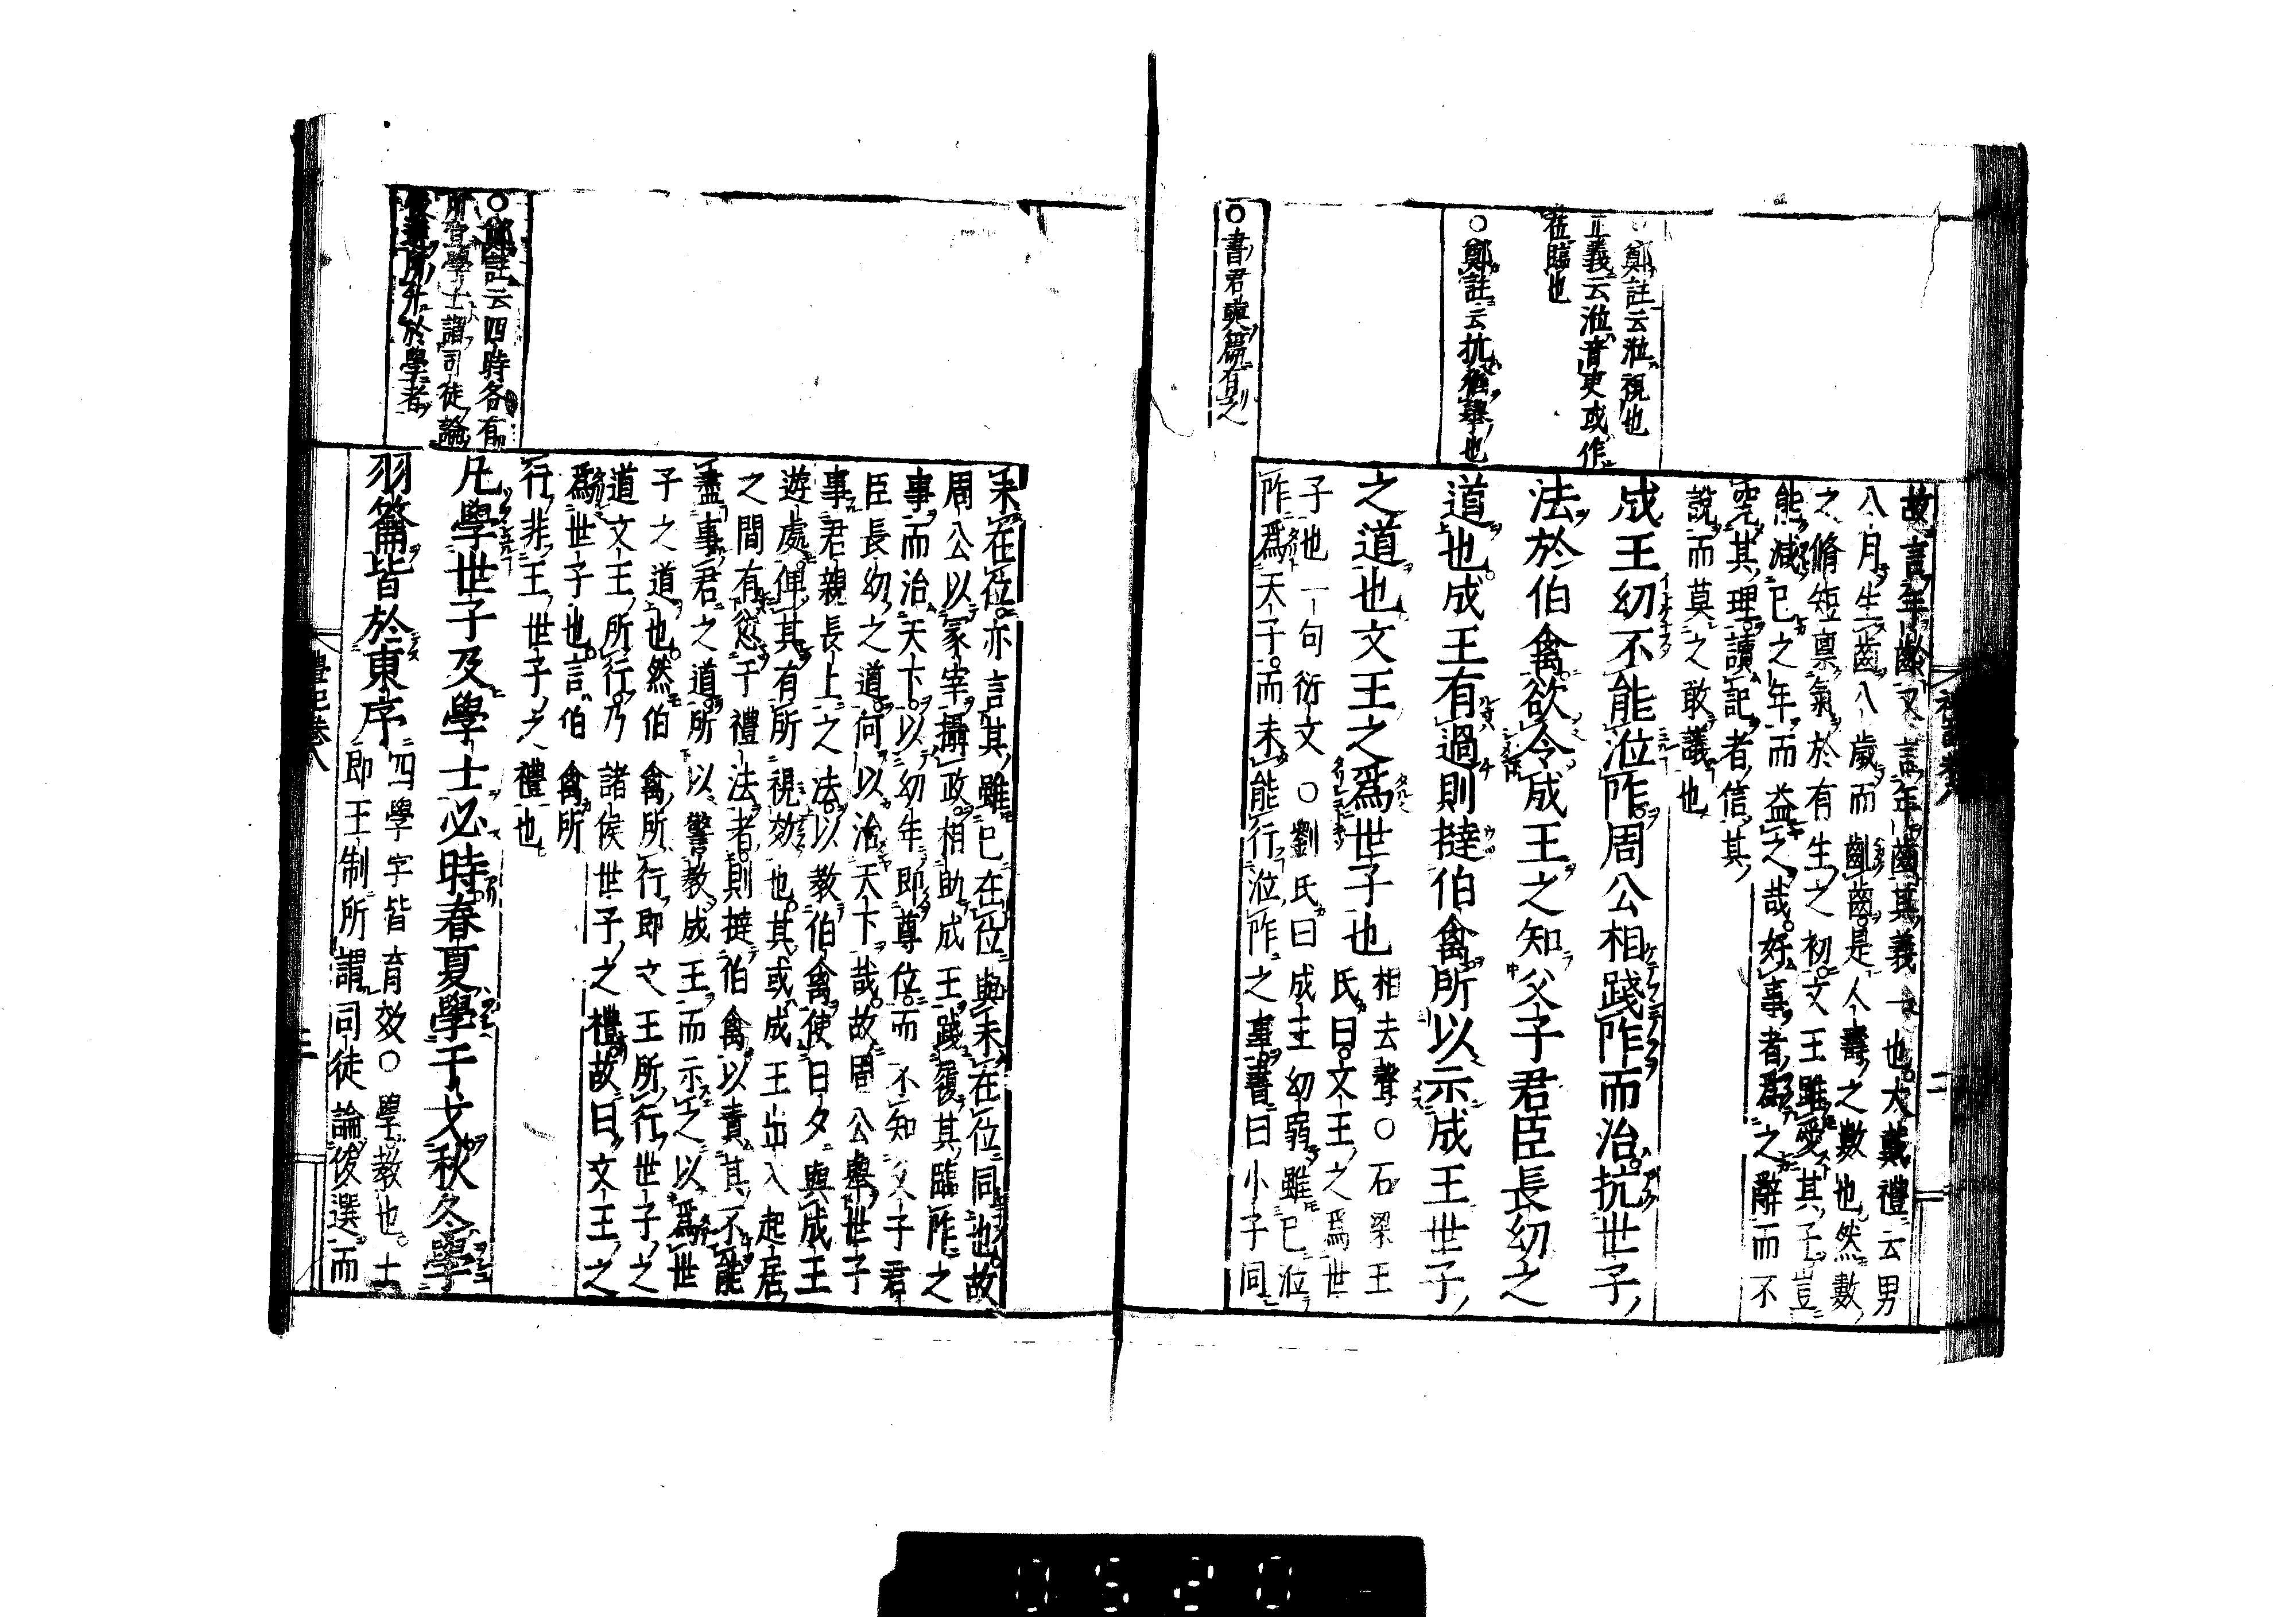 鄭註云涖視也
正義云涖音吏或作
莅臨也
○鄭註云抗猶舉也
○書君奭篇有之
故言年齡又言年齒其義一也大戴禮云男
八月生齒八歲而齠齒是人壽之數也然數
之脩短稟氣於有生之初文王雖愛其子豈
能減已之年而益之哉好事者爲之辭而不
究其理讀記者信其
說而莫之敢議也
成王幼不能涖阼周公相踐阼而治抗世子
法於伯禽欲令成王之知父子君臣長幼之
道也成王有過則撻伯禽所以示成王世子
之道也文王之爲世子也
相去聲○石梁王
氏曰文王之爲世
子也一句衍文○劉氏曰成王幼弱雖已涖
阼爲天子而未能行涖阼之事書曰小子同
○鄭註云四時各有
所宜學士謂司徒論
俊選所升於學者
未在位亦言其雖已在位與未在位同也故
周公以冢宰攝政相助成王踐履其臨阼之
事而治天下以幼年即尊位而不知父子君
臣長幼之道何以治天下哉故周公舉世子
事君親長上之法以教伯禽使日夕與成王
遊處俾其有所視效也其或成王出入起居
之間有愆于禮法者則撻伯禽以責其不能
盡事君之道所以警教成王而示之以爲世
子之道也然伯禽所行即文王所行世子之
道文王所行乃諸侯世子之禮故曰文王之
爲世子也言伯禽所
行非王世子之禮也
凡學世子及學士必時春夏學干戈秋冬學
羽籥皆於東序
四學字皆音效○學教也士
即王制所謂司徒論俊選而
禮記卷八
三
0520